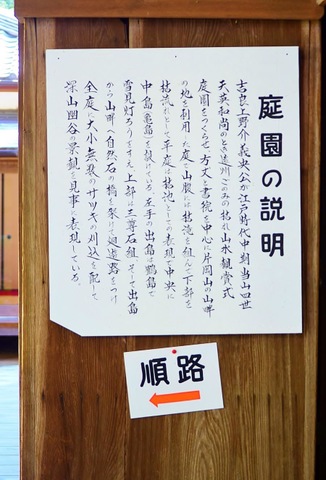 庭園の説明
吉良上野介義央公が江戸時代中期当山四世
天英和尚のとき遠州ごのみの枯れ山水観賞式
庭園をつくらせ方丈、書院を中心に片岡山の山畔
の地を利用した庭で山腹には枯滝を組んで下部を
枯流れとして平庭は枯池としての表現で中央に
中島(亀島)を設けている。左手の出島は鶴島で
雪見灯ろうをすえ上部は三尊石組、そして出島
から山畔へ自然石の橋を架けて廻遊路をつけ
全庭に大小無数のサツキの刈込を配して
深山幽谷の景観を見事に表現している。
順路